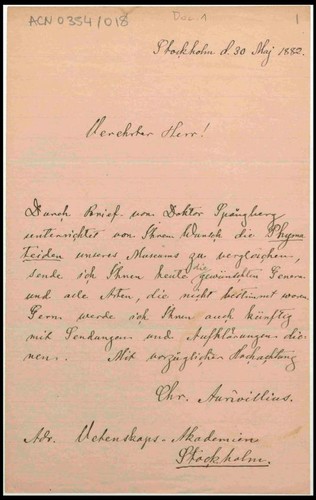 ACN 0354/018
Doc. 1
1
Stockholm d. 30 Maj 1882.
Verehrter Herr!
Durch Brief von Doktor Spångberg
unterrichtet von Ihrem Wunsch die Phyma-
teiden unseres Museums zu vergleichen,
sende ich Ihnen heute die gewünschten Genera
und alle Arten, die nicht bestimmt waren
Gern werde ich Ihnen auch künftig
mit Sendungen und Aufklärungen die-
nen. Mit vorzüglicher Hochachtung
Chr. Aurivillius.
Adr. Vetenskaps-Akademien
Stockholm.